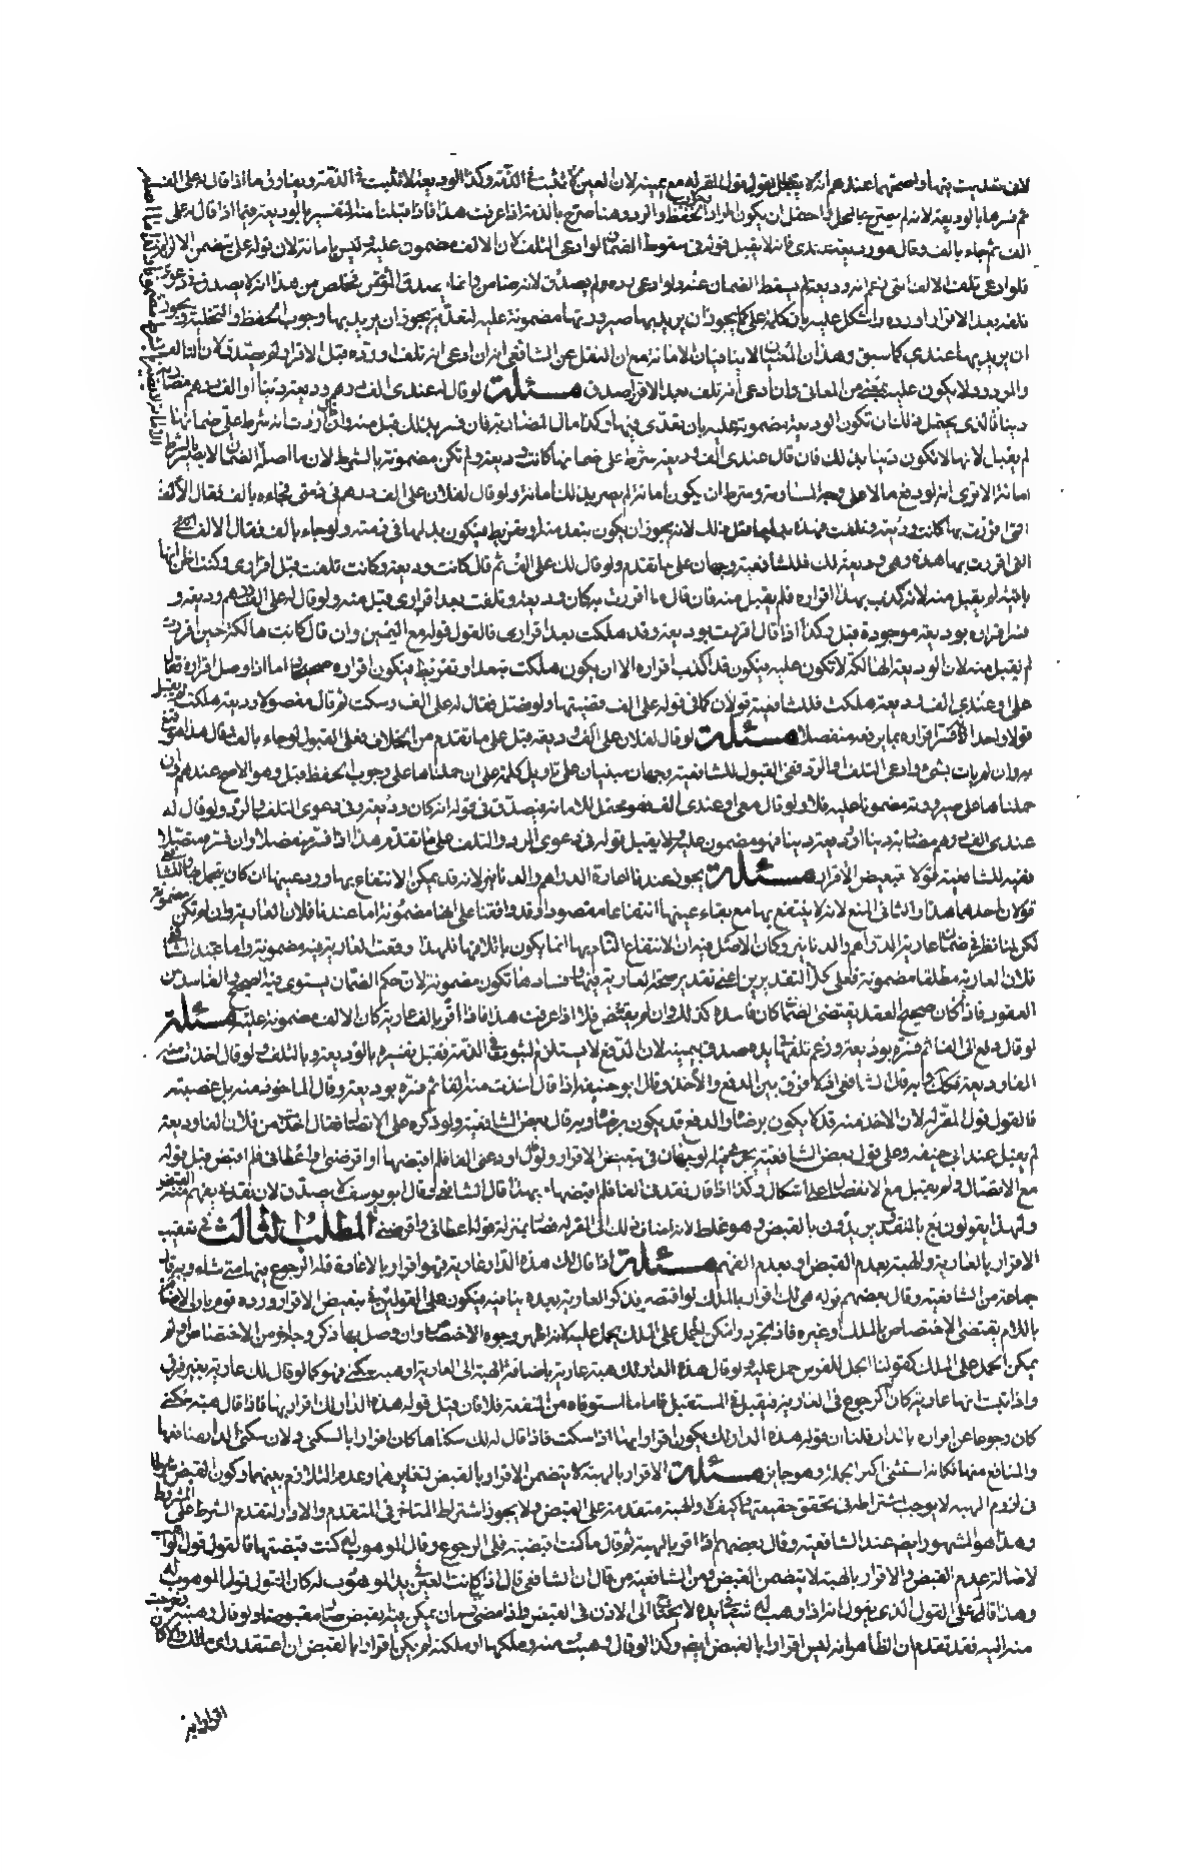 لانه تعديت فيها واصحهما عندهم انه لا يقبل بل القول قول المقر له مع يمينه لان العين لا تثبت في الذمة وكذا الوديعة لا تثبت في الذمة ويفارق ما اذا قال له علي الف
ثم فسرها بالوديعة لانه لم يصرح بالمحل واحتمل ان يكون المراد وجوب الحفظ والرد وهنا صرح بالذمة اذا عرفت هذا فاذا قبلنا منه التفسير بالوديعة فيما اذا قال له علي
الف ثم جاء بالف وقال هو وديعة عندي فانه لا يقبل قوله في سقوط الضمان لو ادعى التلف لان الالف مضمون عليه وليس بامانة لان قوله علي يتضمن الالزام
فلو ادعى تلف الالف التي زعم انه وديعة لم يسقط الضمان عنه ولو ادعى رده لم يصدق لانه ضامن وانما يصدق المؤتمن
تلفه بعد الاقرار او رده واشكل عليه بان كلمة علي كما يجوز ان يريد بها صيرورتها مضمونة عليه لتعديه يجوز ان يريد بها وجوب الحفظ والتخلية ويجوز
ان يريد بها عندي كما سبق وهذان المعنيان لا ينافيان الامانة مع ان النقل عن الشافعي انه ان ادعى انه تلف او رده قبل الاقرار لم يصدق لان التالف
والمردود لا يكون عليه بمعنى من المعاني وان ادعى انه تلف بعد الاقرار صدق مسئلة لو قال له عندي الف درهم وديعة دينا او الف درهم مضاربة
دينا فالذي يحتمل ذلك ان تكون الوديعة مضمونة عليه بان تعدى فيها وكذا مال المضاربة فان فسر بذلك قبل منه وان قال اردت انه شرط علي ضمانها
لم يقبل لانها لا تكون دينا بذلك فان قال عندي الف وديعة شرط علي ضمانها كانت وديعة ولم تكن مضمونة بالشرط لان ما اصله الضمان لا يصير بالشرط
امانة الا ترى انه لو دفع مالا على وجه المساومة وشرط ان يكون امانة لم يصر بذلك امانة ولو قال لفلان علي الف درهم في ذمتي فجاءه بالف فقال الالف
التي اقررت بها كانت وديعة وتلفت فهذه بدلها قبل ذلك لانه يجوز ان يكون بتعد منه او تفريط فيكون بدلها في ذمته ولو جاء بالف فقال الالف
التي اقررت بها هذه وهي وديعة لك فللشافعية وجهان على ما تقدم ولو قال لك علي الف ثم قال كانت وديعة وكانت تلفت قبل اقراري وكنت اظن انها
باقية لم يقبل منه لانه كذب بهذا اقراره فلم يقبل منه فان قال ما اقررت به كان وديعة وتلفت بعد اقراري قبل منه ولو قال له علي الف درهم وديعة
فسر اقراره بوديعة موجودة قبل وكذا اذا قال اقررت بوديعة وقد هلكت بعد اقراري فالقول قوله مع اليمين وان قال كانت هالكة حين اقررت
لم يقبل منه لان الوديعة الهالكة لا تكون عليه فيكون قد اكذب اقراره الا ان يكون هلكت بتعد او تفريط فيكون اقراره صحيحا اما اذا وصل اقراره فقال
علي او عندي الف وديعة هلكت فللشافعية قولان كما في قوله علي الف قضيتها ولو فصل فقال له علي الف وسكت ثم قال مفصولا وديعة هلكت لم يقبل
قولا واحدا لانه فسر اقراره بما يرفعه منفصلا مسئلة لو قال لفلان علي الف وديعة قبل على ما تقدم من الخلاف فعلى القبول لو جاء بالف وقال هذا هو
حملناها على صيرورته مضمونا عليه فلا ولو قال معي او عندي الف فهو محتمل للامانة فيصدق في قوله انه كان وديعة وفي دعوى التلف والرد ولو قال له
عندي الف درهم مضاربة دينا او وديعة دينا فهو مضمون عليه ولا يقبل قوله في دعوى الرد والتلف على ما تقدم هذا اذا فسر منفصلا وان فسر متصلا
ففيه للشافعية قولا تبعيض الاقرار مسئلة يجوز عندنا اعارة الدراهم والدنانير لانه قد يمكن الانتفاع بها ورد عينها
قولان احدهما هذا والثاني المنع لانه لا ينتفع بها مع بقاء عينها انتفاعا مقصودا وقد وافقنا على انها مضمونة اما عندنا فلان العارية وان لم تكن مضمونة
لكن لنا نظر في ضمان عارية الدراهم والدنانير وكان الاصل فيه ان الانتفاع التام بها انما يكون باتلافها فلهذا وقعت العارية فيه مضمونة واما عند الشافعي
فلان العارية مطلقا مضمونة فعلى كلا التقديرين اعني تقدير صحة العارية فيها وفسادها تكون مضمونة لان حكم الضمان يستوي فيه الصحيح والفاسد من
العقود فاذا كان صحيح العقد يقتضي الضمان كان فاسده كذلك وان لم يقتض فلا اذا عرفت هذا فاذا اقر بالف عارية كان الالف مضمونة عليه مسئلة
لو قال دفع الي الفا ثم فسره بوديعة وزعم تلفها في يده صدق بيمينه لان الدفع لا يستلزم الثبوت في الذمة فقبل تفسيره بالوديعة وبالتلف ولو قال اخذت منه
الفا وديعة فكذلك وبه قال الشافعي اذ لا فرق بين الدفع والاخذ وقال ابو حنيفة اذا قال اخذت منه الفا ثم فسره بوديعة وقال الماخوذ منه بل غصبته
فالقول قول المقر له لان الاخذ منه قد لا يكون برضاه والدفع قد يكون برضاه وبه قال بعض الشافعية ولو ذكره على الاتصال فقال اخذت من فلان الفا وديعة
لم يقبل عند ابي حنيفة وعلى قول بعض الشافعية يجري في مثله الوجهان في تبعيض الاقرار ولو قال اودعني الفا فلم اقبضها او اقرضني او اعطاني فلم اقبض قبل قوله
مع الاتصال ولم يقبل مع الانفصال على اشكال وكذا اذا قال نقدني الفا فلم اقبضها وبهذا قال الشافعي وقال ابو يوسف لا يصدق لان نقدني يفهم منه القبض
ولهذا يقولون بع بالنقد يريدون بالقبض وهو غلط لانه اضاف ذلك الى المقر له فصار بمنزلة قوله اعطاني واقرضني المطلب الثالث في تعقيب
الاقرار بالعارية والهبة بعدم القبض او بعدم الفهم مسئلة اذا قال لك هذه الدار عارية فهو اقرار بالاعارة فله الرجوع فيها متى شاء وبه قال
جماعة من الشافعية وقال بعضهم قوله هي لك اقرار بالملك لو اقتصر عليه فذكر العارية بعده ينافيه فيكون على القولين في تبعيض الاقرار ورده قوم بان الاضافة
باللام تقتضي الاختصاص بالملك او غيره فاذا تجرد وامكن الحمل على الملك يحمل عليه لانه اظهر وجوه الاختصاص وان وصل بها ذكر وجه اخر من الاختصاص او لم
يمكن الحمل على الملك كقولنا الجل للفرس حمل عليه ولو قال هذه الدار لك هبة عارية باضافة الهبة الى العارية او هبة سكنى فهو كما لو قال لك عارية بغير فرق
واذا ثبت انها عارية كان له الرجوع في العارية فيقبل في المستقبل فاما ما استوفاه من المنفعة فلا فان قيل قوله هذه الدار لك اقرار بها فاذا قال هبة سكنى
كان رجوعا عن اقراره بالدار قلنا ان قوله هذه الدار لك يكون اقرارا بها اذا سكت فاذا قال له لك سكناها كان اقرارا بالسكنى ولان سكنى الدار منافعها
والمنافع منها فكانه استثنى اكثر الجملة وهو جائز مسئلة الاقرار بالهبة لا يتضمن الاقرار بالقبض لتغايرهما وعدم التلازم بينهما وكون القبض شرطا
في لزوم الهبة لا يوجب اشتراطه في تحقق حقيقتها وكيف لا والهبة متقدمة على القبض ولا يجوز اشتراط المتاخر في المتقدم والا لزم تقدم المشروط على الشرط
وهذا هو المشهور ايضا عند الشافعية وقال بعضهم اذا اقر بالهبة ثم قال ما كنت اقبضته فلي الرجوع وقال الموهوب له كنت قبضتها فالقول قول الواهب
لاصالة عدم القبض والاقرار بالهبة لا يتضمن القبض ومن الشافعية من قال ان الشافعي قال اذا كانت العين في يد الموهوب له كان القول قول الموهوب له
وهذا قاله على القول الذي يقول انه اذا وهب له شيئا في يده لا يحتاج الى الاذن في القبض واذا مضى زمان يمكن فيه القبض صار مقبوضا ولو قال وهبته وخرجت
منه اليه فقد تقدم ان الظاهر انه ليس اقرارا بالقبض ايضا وكذا لو قال وهبت منه وملكها او ملكته لم يكن اقرارا بالقبض ان اعتقد راي مالك والا كان
اقرارا به